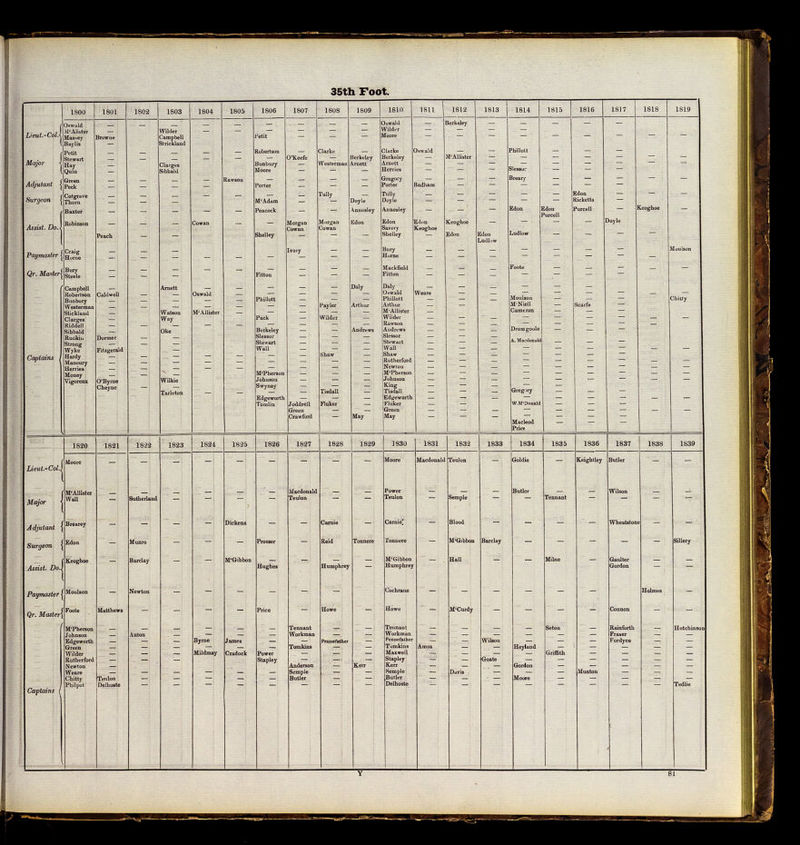 35th Foot.
1800 1801 1802 1803 1804 1805 1806 1807 1808 1809 1810 1811 1812 1813 1814 1815 1816 1817 1818 1819
Lieut.-Col.
Oswald — — — — — — — — — Oswald — Berkeley — — — — — — —
M'Alister — — Wilder — — — — — — Wilder — — — — — — — — —
Massey Browne — Campbell — — Petit — — — Moore — — — — — — — — —
Baylis — Strickland
Major
Petit — — — — — Robertson — Clarke — Clarke Oswald — — Phillott — — — — —
Stewart — — — — — — O'Keefe — Berkeley Berkeley — M'Allister — — — — — — —
Hay — — Clarges — — Bunbury — Westerman Arnett Arnett
Quin — — Sibbald — — Moore — — — Herries — — — Slessor — — — — —
Adjutant
Green — — — — Rawson — — — — Gregory — — — Breary — — — — —
Peck — — — — — Porter — — — Porter Badham
Surgeon
Cotgrave — — — — — — — Tully — Tully — — — — — Edon — — —
Thorn — — — — — M'Adam — — Doyle Doyle — — — — — Ricketts — — —
Assist. Do.
Baxter — — — — — Peacock — — Annesley Annesley — — — Edon Edon Purcell — Keoghoe —
Purcell
Robinson — — — Cowan — — Morgan Morgan Edon Edon Edon Keoghoe — — — — Doyle — —
Cowan Cowan Savery Keoghoe
Peach — — — — Shelley — — — Shelley — Edon Edon Ludlow
Ludlow
Paymaster
Craig — — — — — — Ivory — — Bury — — — — — — — — Moulson
Horne — — — — — — — — — Horne
Qr. Master
Bury — — — — — — — — — Mackfield — — — Foote — — — — —
Steele — — — — — Fitton — — — Fitton
Captains
Campbell — — Arnett — — — — — Daly Daly
Robertson Caldwell — — Oswald — — — — — Oswald Weare
Bunbury — — — — — Phillott — — — Phillott — — — Moulson — — — — Chitty
Westerman — — — — — — — Payler Arthur Arthur — — — M'Niell — Scarfe
Stickland — — Watson M'Allister — — — — — M'Allister — — — Cameron
Clarges — — Way — — Pack — Wilder — Wilder
Riddell — — — — — — — — — Rawson
Sibbald — — Oke — — Berkeley — — Andrews Andrews — — — Drumgoole
Ruokin Dormer — — — — Slessor — — — Slessor
Strong — — — — — Stewart — — — Stewart — — — A. Macdonald
Wyke Fitzgerald — — — — Wall — — — Wall
Hardy — — — — — — — Shaw — Shaw
Manoury — — — — — — — — — Rutherford
Herries — — — — — — — — — Newton
Money — — — — — M'Pherson — — — M'Pherson
Vigoreux O'Byrne — Wilkie — — Johnson — — — Johnson
Cheyne — — — — Swyney — — — King
Tarleton — — — — Tisdall — Tisdall — — — Gregory
Edgeworth — — — Edgeworth
Tomlin Joddrell Fluker — Fluker — — — W. M'Donald
Green — — Green
Crawford — May May — — — Macleod
Price
1820 1821 1822 1823 1824 1825 1826 1827 1828 1829 1830 1831 1832 1833 1834 1835 1836 1837 1838 1839
Lieut.-Col.
Moore — — — — — — — — — Moore Macdonald Teulon — Goldie — Keightley Butler — —
Major
M'Allister — — — — — — Macdonald — — Power — — — Butler — — Wilson — —
Wall — Sutherland — — — — Teulon — — Teulon — Semple — — Tennant — — — —
Adjutant
Brearey — — — — Dickens — — Carnie — Carnie — Blood — — — — Wheatstone — —
Surgeon
Edon — Munro — — — Prosser — Reid Tonnere Tonnere — M'Gibbon Barclay — — — — — Sillery
Assist. Do.
Keoghoe — Barclay — — M'Gibbon — — — — M'Gibbon — Hall — — Milne — Gaulter — —
Hughes — Humphrey — Humphrey Gordon
Paymaster
Moulson — Newton — — — — — — — Cochrane — — — — — — — Holmes —
Qr. Master
Foote Matthews — — — — Price — Howe — Howe — M'Curdy — — — — Connon — —
Captains
M'Pherson — — — — — — Tennant — — Tennant — — — — Seton — Rainforth — Hutchinson
Johnson — Axton — — — — Workman — — Workman — — — — — — Fraser — —
Edgeworth — — — Byrne James — — Pennefather — Pennefather — — Wilson — — — Fordyce — —
Green — — — — — — Tomkins — — Tomkins Amos — — Hayland — — — — —
Wilder — — — Mildmay Cradock Power — — — Maxwell — — — — Griffith — — — —
Rutherford — — — — — Stapley — — — Stapley — — Goate — — — — — —
Newton — — — — — — Anderson — Kerr Kerr — — — Gordon — — — — —
Weare — — — — — — Semple — — Semple — Davis — — — Muston — — —
Chitty Teulon — — — — — Butler — — Butler — — — Moore — — — — —
Philpot Delhoste — — — — — — — — Delhoste — — — — — — — — Tedlie
Y 81